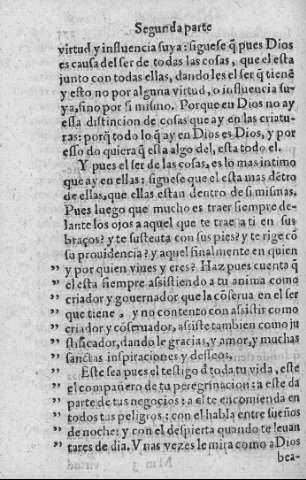 Segunda parte
virtud y influencia suya: siguese q̃ pues Dios
es causa del ser de todas las cosas, que el esta
junto con todas ellas, dandoles el ser q̃ tienẽ
y esto no por alguna virtud, o influencia su-
ya, sino por si mismo. Porque en Dios no ay
essa distincion de cosas que ay en las criatu-
ras: porq̃ todo lo q̃ ay en Dios es Dios, y por
esso do quiera q̃ esta algo del, esta todo el.
Y pues el ser de las cosas, es lo mas intimo
que ay en ellas: siguese que el esta mas dẽtro
de ellas, que ellas estan dentro de si mismas.
Pues luego que mucho es traer siempre de-
lante los ojos a aquel que te trae a ti en sus
braços? y te sustenta con sus pies? y te rige cõ
su prouidencia? y aquel finalmente en quien
” y por quien viues y eres? Haz pues cuenta q̃
” el esta siempre asistiendo a tu anima como
” criador y gouernador que la cõserua en el ser
” que tiene, y no contento con asistir como
” criador y cõseruador, asiste tambien como ju
” stificador, dandole gracias, y amor, y muchas
” sanctas inspiraciones y desseos.
” Este sea pues el testigo d̃ toda tu vida, este
” el compañero de tu peregrinacion: a este da
” parte de tus negocios: a el te encomienda en
” todos tus peligros: con el habla entre sueños
” de noche: y con el despierta quando te leuan
” tares de dia. Vnas vezes le mira como a Dios
bea-